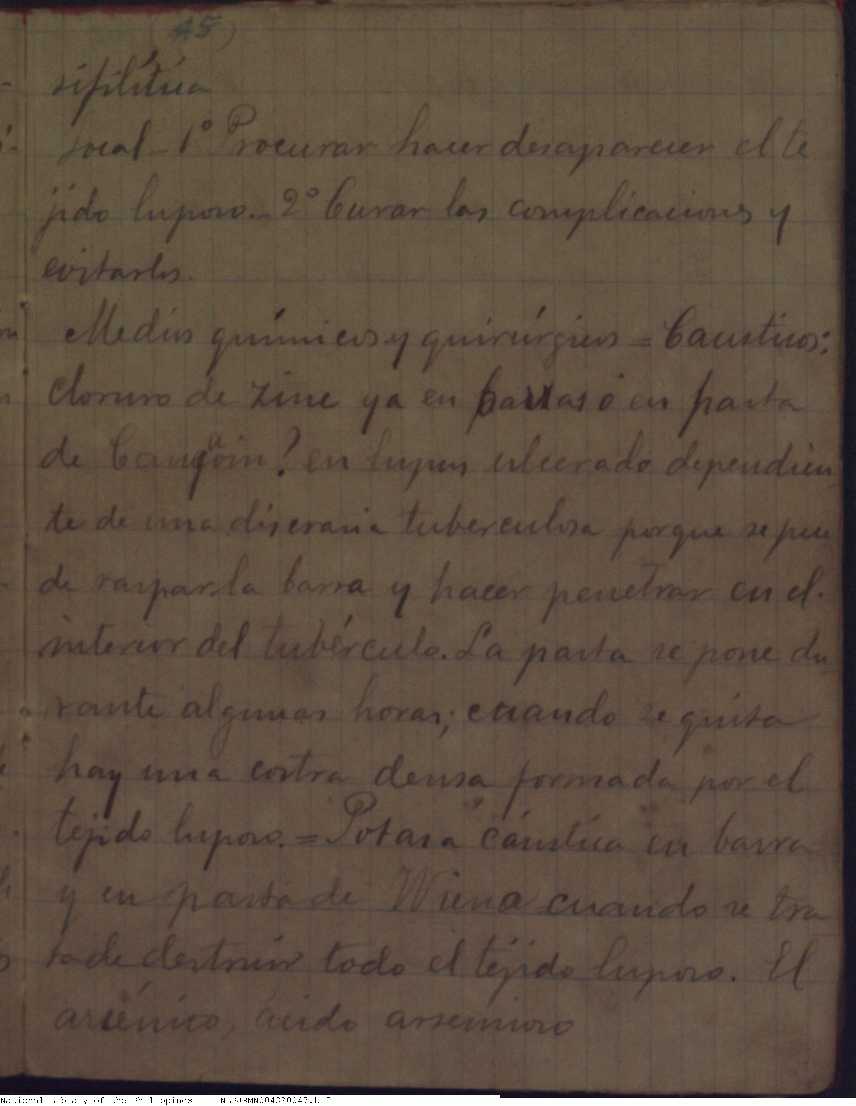 (45)
sifilítica
Local – 1º Procurar hacer desaparecer el te
jido luposo. – 2º Curar las complicaciones y
evitarlas.
Medios químicos y quirúrgicos = Causticos:
cloruro de zinc ya en barras ó en pasta
de Cauqöin? en lupus ulcerado dependien
te de una discrasia tuberculosa porque se pue
de raspar la barra y hacer penetrar en el
interior del tubérculo. La pasta se pone du
rante algunas horas; cuando se quita
hay una costra densa formada por el
tejido luposo. = Potasa cáustica en barra
y en pasta de Wiena cuando se tra
ta de destruir todo el téjido luposo. El
arsénico, ácido arsenioso
National Library of the Philippines